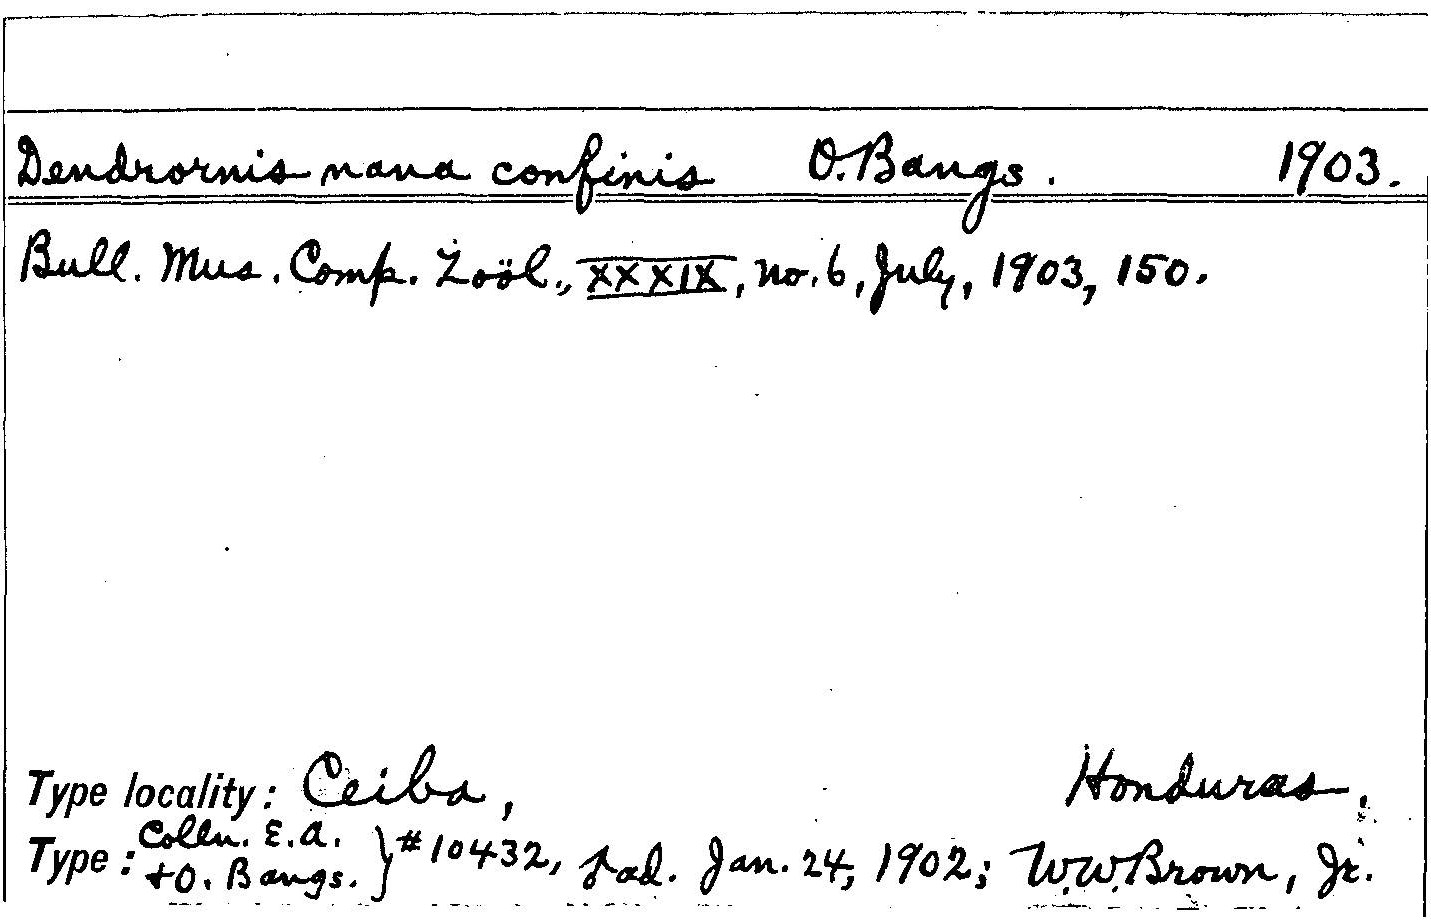 Dendrornis nana confinis O. Bangs. 1903.
Bull. Mus. Comp. Zoöl., XXXIX, no. 6, July, 1903, 150.
Type locality: Ceiba, Honduras,
Type: Colln. E.A. + O. Bangs. } #10432, ad. Jan. 24, 1902; W.W. Brown, Jr.